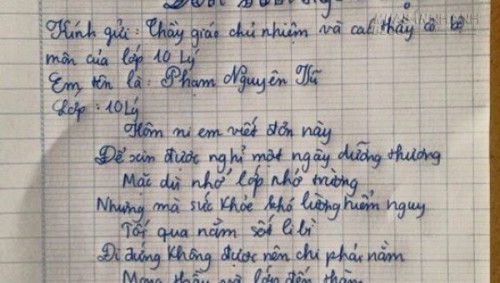 Kính gửi: Thầy giáo chủ nhiệm và các thầy cô bộ
môn của lớp 10 Lý
Em tên là: Phạm Nguyên Vũ
Lớp: 10 Lý
Hôm ni em viết đơn này
Để xin được nghỉ một ngày dưỡng thương
Mặc dù nhớ lớp nhớ trường
Nhưng mà sức khỏe khó lường hiểm nguy
Tối qua nằm sốt li bì
Đi đứng không được nên chi phải nằm
Mong thầy và lớp đến thăm